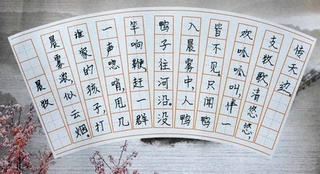 晨牧
晨雾浓,似云烟
谁家的孩子,打
一声唿哨,甩几
竿响鞭赶一群
鸭子往河沿。没
入晨雾中,人鸭
皆不见只闻鸭
欢叫伴一
支牧歌清悠悠,
传天边。